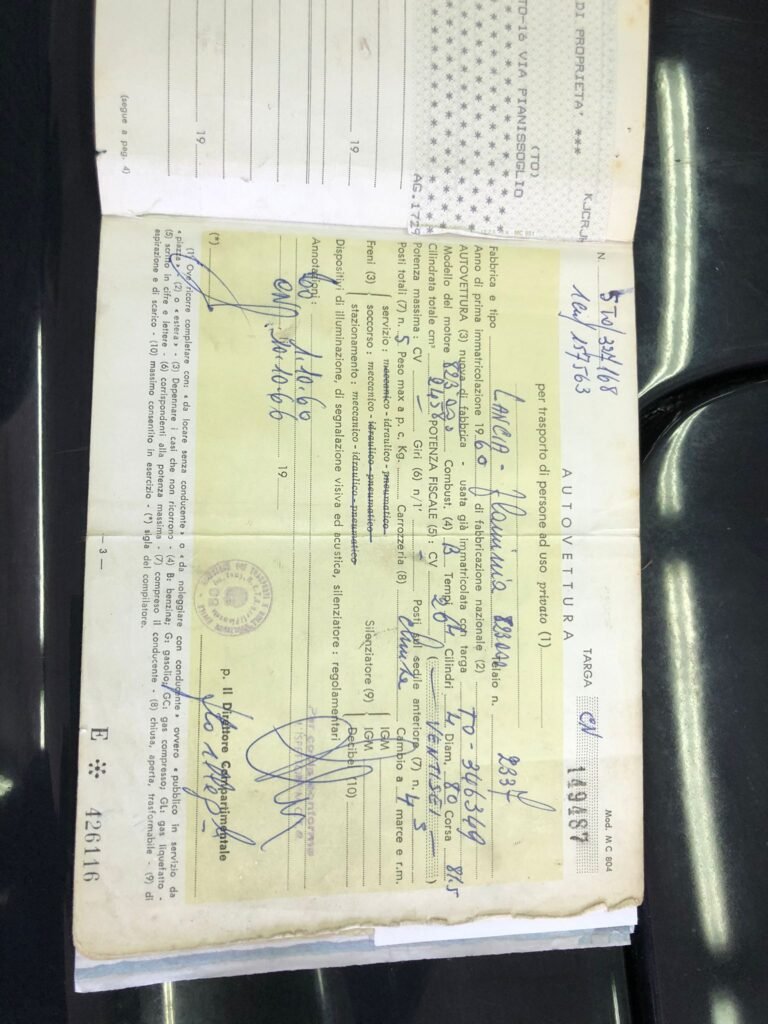 DI PROPRIETA' ***
TO-16 VIA PIANISSOGLIO
(TO)
AG.1729
19
19
(segue a pag. 4)
Mod. M C 804
N. 5 TO/332168
157563
TARGA CN 149487
AUTOVETTURA
per trasporto di persone ad uso privato (1)
Fabbrica e tipo LANCIA - Flaminia 823.00 Telaio n. 2337
Anno di prima immatricolazione 1960 di fabbricazione nazionale (2)
AUTOVETTURA (3) nuova di fabbrica - usata già immatricolata con targa TO-346349
Modello del motore 823.00 Combust. (4) B Tempi 4 Cilindri Diam. 80 Corsa 81.5
Cilindrata totale cm³ 2458 POTENZA FISCALE (5): CV 26 ( VENTISEI )
Potenza massima: CV — Giri (6) n/1' - Posti sul sedile anteriore (7) n.
Posti totali (7) n. 5 Peso max a p. c. Kg. Carrozzeria (8) chiusa Cambio a 4 marce e r.m.
Freni (3) servizio: meccanico - idraulico - pneumatico
soccorso: meccanico - idraulico - pneumatico
stazionamento: meccanico - idraulico - pneumatico
Silenziatore (9) IGM
IGM
Decibel (10)
Dispositivi di illuminazione, di segnalazione visiva ed acustica, silenziatore: regolamentari
Annotazioni:
CN, 20.10.66 19
(*)
p. Il Direttore Compartimentale
(1) Ove ricorre completare con: «da locare senza conducente» o «da noleggiare con conducente» ovvero «pubblico in servizio da
«piazza» (2) o «estera» - (3) Depennare i casi che non ricorrono - (4) B: benzina; G: gasolio; GC: gas compresso; GL: gas liquefatto -
(5) scritto in cifre e lettere - (6) corrispondenti alla potenza massima - (7) compreso il conducente - (8) chiusa, aperta, trasformabile - (9) di
aspirazione e di scarico - (10) massimo consentito in esercizio - (*) sigla del compilatore.
— 3 —
E 426116